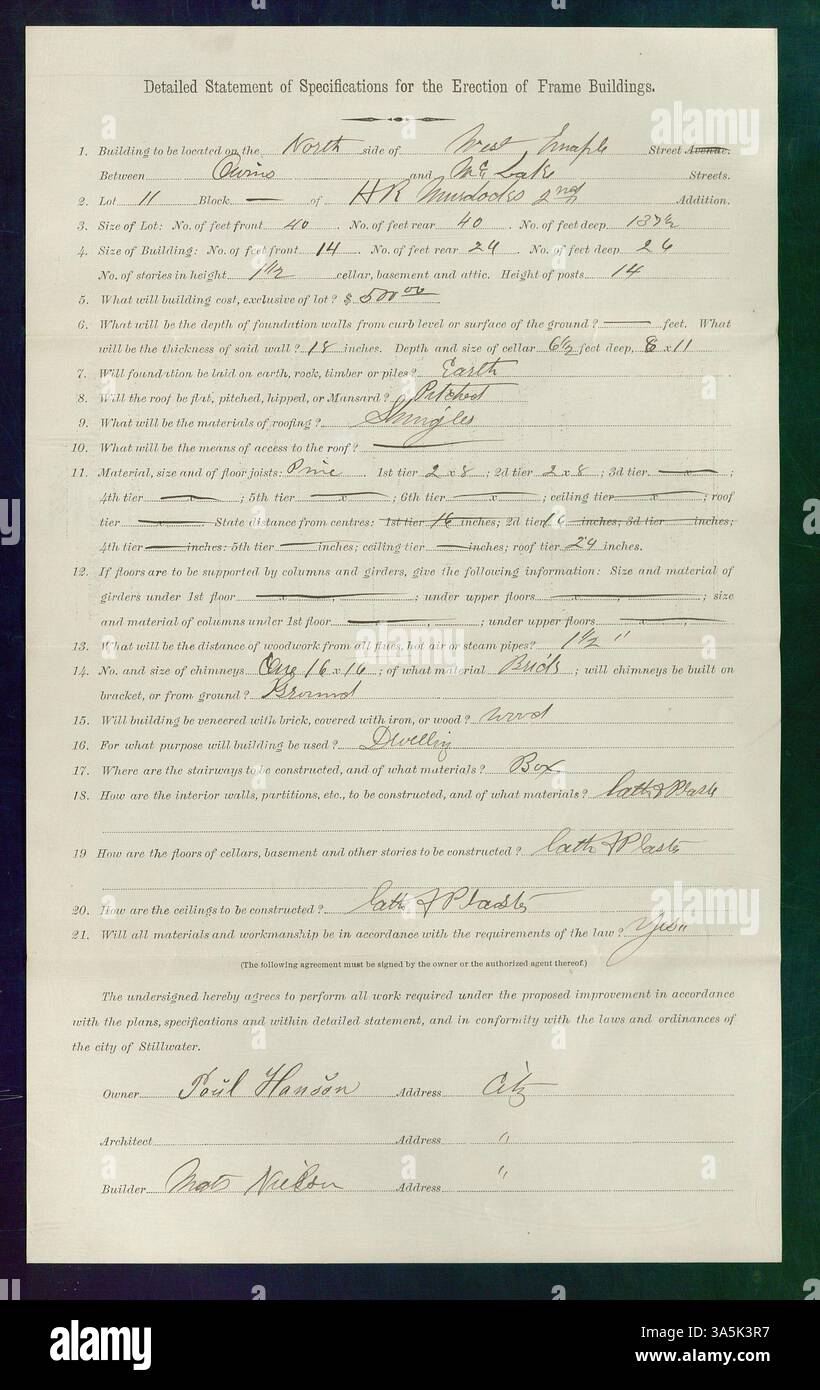 Detailed Statement of Specifications for the Erection of Frame Buildings.
1. Building to be located on the North side of West Maple Street Avenue.
Between Owens and Mc. Streets.
2. Lot 11 Block — of H R Murdocks 2nd Addition.
3. Size of Lot: No. of feet front 40. No. of feet rear 40. No. of feet deep 137½
4. Size of Building: No. of feet front 14. No. of feet rear 24. No. of feet deep 26
No. of stories in height 1½ cellar, basement and attic. Height of posts 14
5. What will building cost, exclusive of lot? $ 500 00
6. What will be the depth of foundation walls from curb level or surface of the ground? — feet. What
will be the thickness of said wall? 18 inches. Depth and size of cellar 6½ feet deep, 8 x 11
7. Will foundation be laid on earth, rock, timber or piles? Earth
8. Will the roof be flat, pitched, hipped, or Mansard? Pitched
9. What will be the materials of roofing? Shingles
10. What will be the means of access to the roof? —
11. Material, size and of floor joists: Pine. 1st tier 2 x 8; 2d tier 2 x 8; 3d tier x;
4th tier x; 5th tier x; 6th tier x; ceiling tier x; roof
tier x. State distance from centres: 1st tier 16 inches; 2d tier 16 inches; 3d tier inches;
4th tier inches: 5th tier inches; ceiling tier inches; roof tier 24 inches.
12. If floors are to be supported by columns and girders, give the following information: Size and material of
girders under 1st floor x; under upper floors x; size
and material of columns under 1st floor x; under upper floors x,
13. What will be the distance of woodwork from all flues, hot air or steam pipes? 1½ "
14. No. and size of chimneys One 16 x 16; of what material Brick; will chimneys be built on
bracket, or from ground? Ground
15. Will building be veneered with brick, covered with iron, or wood? Wood
16. For what purpose will building be used? Dwelling
17. Where are the stairways to be constructed, and of what materials? Box.
18. How are the interior walls, partitions, etc., to be constructed, and of what materials? Lath & Plaste
19 How are the floors of cellars, basement and other stories to be constructed? Lath & Plaster
20. How are the ceilings to be constructed? Lath & Plaster
21. Will all materials and workmanship be in accordance with the requirements of the law? Yes"
(The following agreement must be signed by the owner or the authorized agent thereof.)
The undersigned hereby agrees to perform all work required under the proposed improvement in accordance
with the plans, specifications and within detailed statement, and in conformity with the laws and ordinances of
the city of Stillwater.
Owner Poul Hanson Address City
Architect Address "
Builder Mats Nielson Address "
alamy
Image ID: 3A5K3R7
www.alamy.com